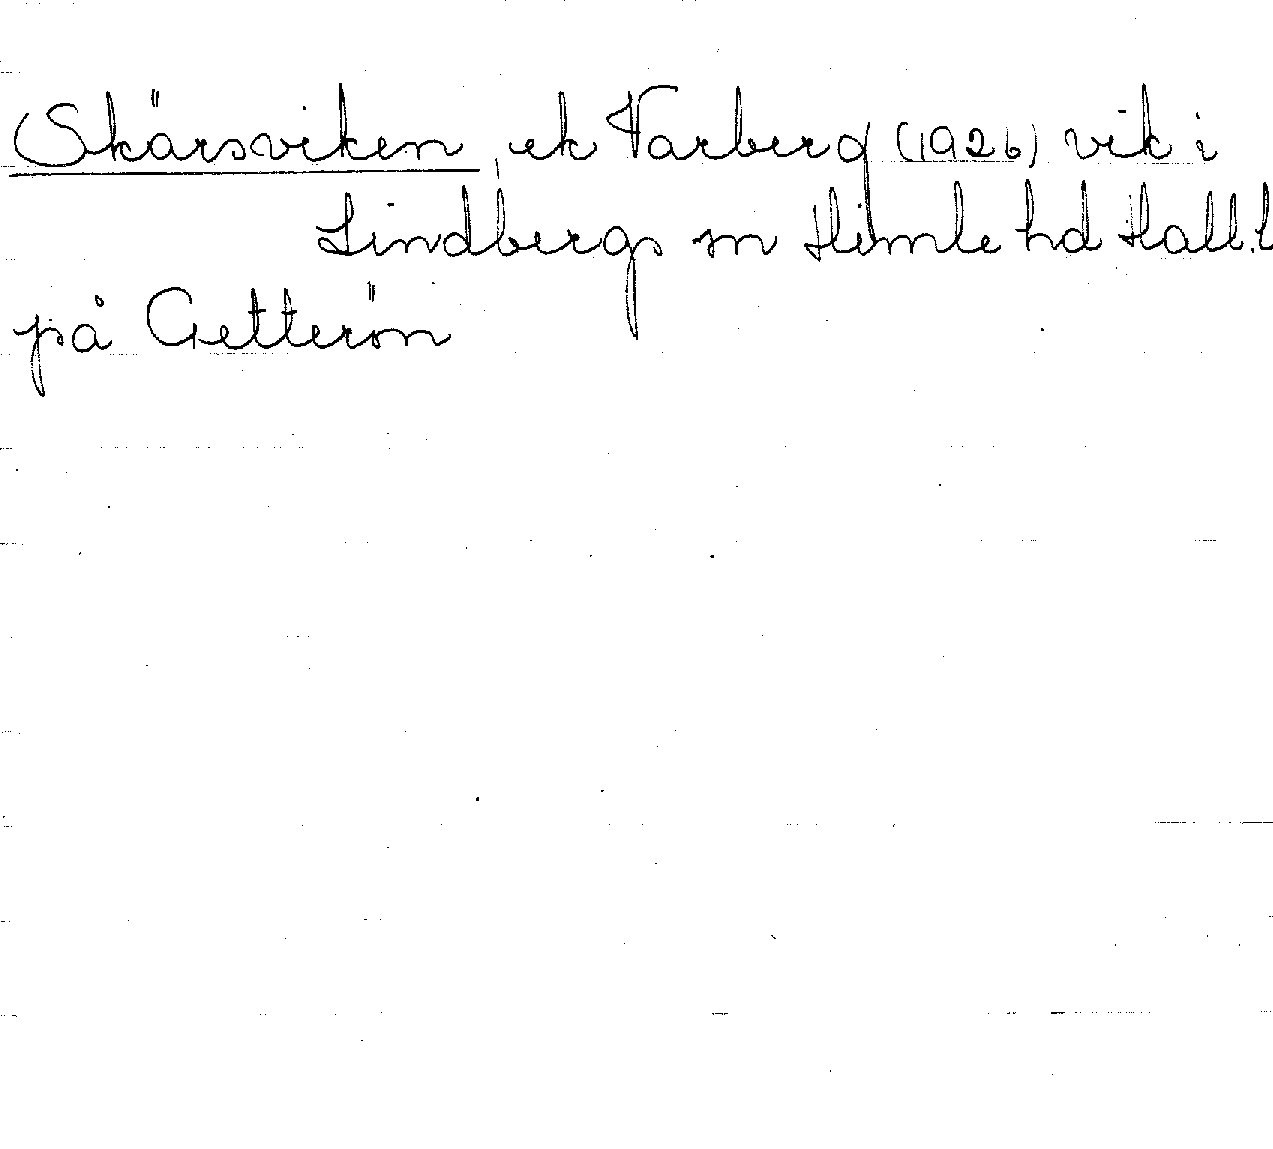 Skärsviken, ek Varberg (1926) vik i
Lindbergs sn Himle hd Hall.l
på Getterön